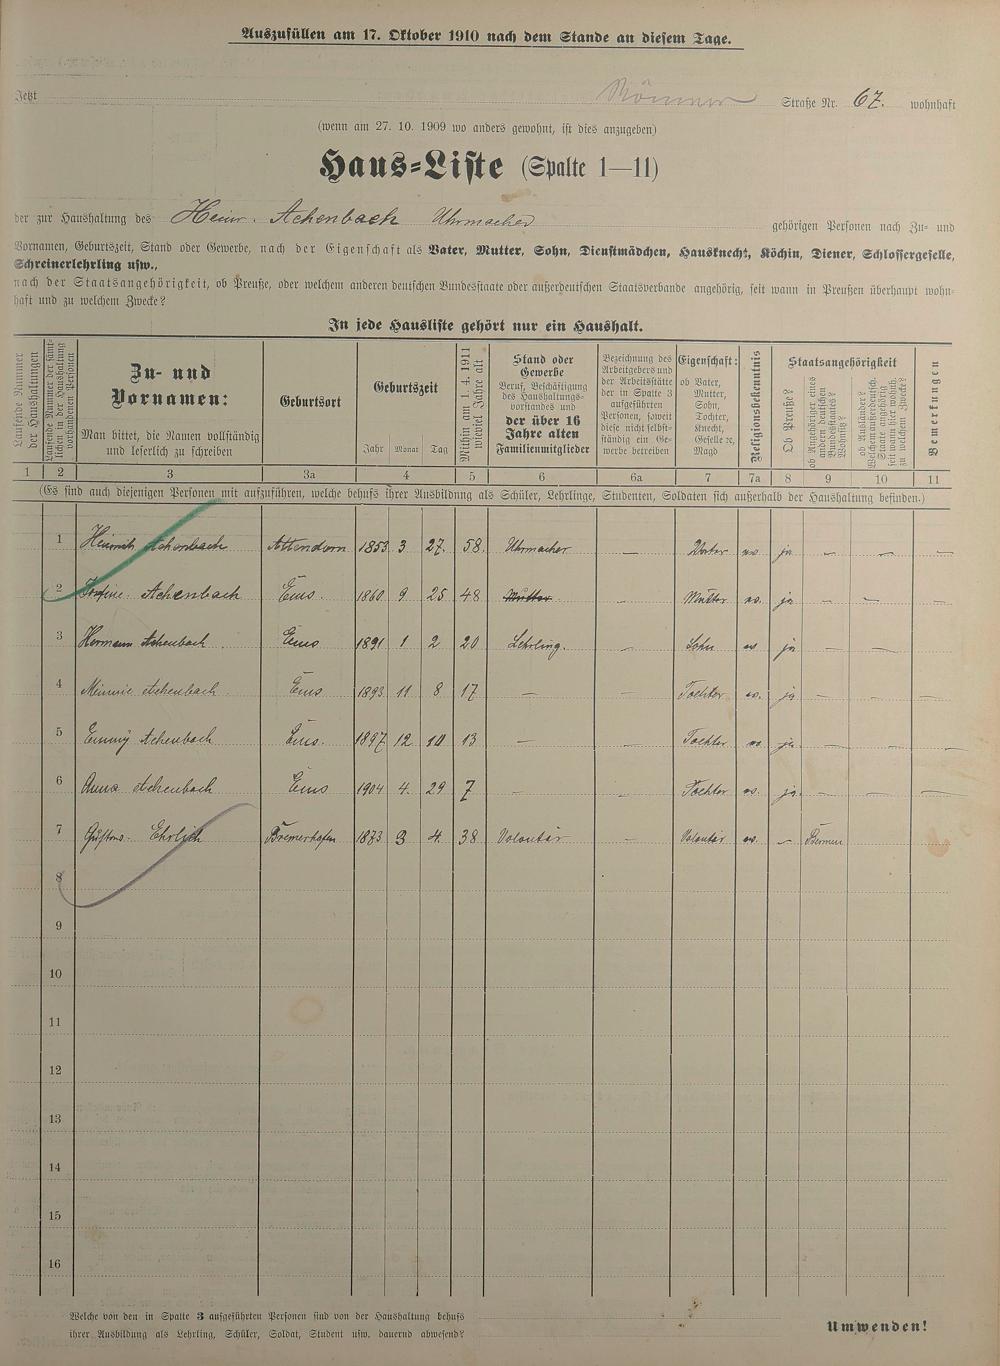 Auszufüllen am 17. Oktober 1910 nach dem Stande an diesem Tage.
Jetzt Römer Straße Nr. 67. wohnhaft
(wenn am 27. 10. 1909 wo anders gewohnt, ist dies anzugeben)
Haus=Liste (Spalte 1—11)
der zur Haushaltung des Heinr. Achenbach Uhrmacher gehörigen Personen nach Zu= und
Vornamen, Geburtszeit, Stand oder Gewerbe, nach der Eigenschaft als Vater, Mutter, Sohn, Dienstmädchen, Hausknecht, Köchin, Diener, Schlossergeselle,
Schreinerlehrling usw.,
nach der Staatsangehörigkeit, ob Preuße, oder welchem anderen deutschen Bundesstaate oder außerdeutschen Staatsverbande angehörig, seit wann in Preußen überhaupt wohn=
haft und zu welchem Zwecke?
In jede Hausliste gehört nur ein Haushalt.
Laufende Nummer der Haushaltungen
Laufende Nummer der sämt=lichen in der Haushaltung vorhandenen Personen
Zu= und Vornamen:
Man bittet, die Namen vollständig und leserlich zu schreiben
Geburtsort
Geburtszeit
Jahr Monat Tag
Mithin am 1. 4. 1911 wieviel Jahre alt
Stand oder Gewerbe
Beruf, Beschäftigung des Haushaltungs=vorstandes und der über 16 Jahre alten Familienmitglieder
Bezeichnung des Arbeitgebers und der Arbeitsstätte der in Spalte 3 aufgeführten Personen, soweit diese nicht selbst=ständig ein Ge=werbe betreiben
Eigenschaft:
ob Vater, Mutter, Sohn, Tochter, Knecht, Geselle ec, Magd
Religionsbekenntnis
Staatsangehörigkeit
Ob Preuße?
ob Angehöriger eines andern deutschen Bundesstaates? Welches?
ob Ausländer? Welchem außerdeutsch. Staate angehörig seit wann hier wohnh. zu welchem Zwecke?
Bemerkungen
1 2 3 3a 4 5 6 6a 7 7a 8 9 10 11
(Es sind auch diejenigen Personen mit aufzuführen, welche behufs ihrer Ausbildung als Schüler, Lehrlinge, Studenten, Soldaten sich außerhalb der Haushaltung befinden.)
1 Heinrich Achenbach Attendorn 1853 3 27. 58. Uhrmacher — Vater ev. ja — — —
2 Achenbach Ems. 1860 9 25 48 Mutter — Mutter ev. ja — — —
3 Hermann Achenbach Ems 1891 1 2 20 Lehrling. — Sohn ev ja — —
4 Minnie Achenbach Ems 1893 11 8 17 — — Tochter ev. ja — — —
5 Emmÿ Achenbach Ems. 1897 12 10 13 — — Tochter ev. ja — — —
6 Anna Achenbach Ems 1904 4. 29 7 — — Tochter ev. ja. — — —
7 Ehrlich Bremerhafen 1873 3 4. 38 Volontär — Volontär ev. — Bremen
8
9
10
11
12
13
14
15
16
Welche von den in Spalte 3 aufgeführten Personen sind von der Haushaltung behufs
ihrer Ausbildung als Lehrling, Schüler, Soldat, Student usw. dauernd abwesend?
Umwenden!